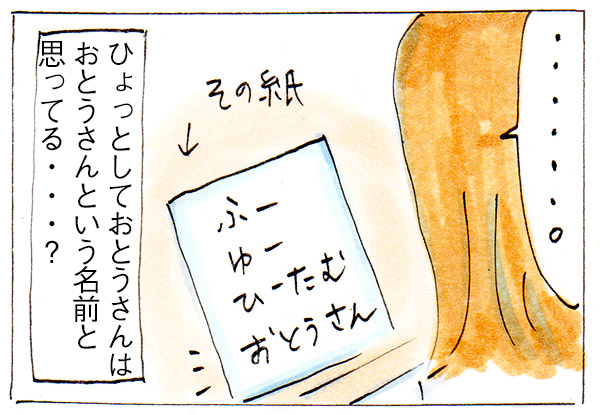 ・・・・・・・・。
その紙
ふー
ゆー
ひーたむ
おとうさん
ひょっとしておとうさんは
おとうさんという名前と
思ってる・・・？